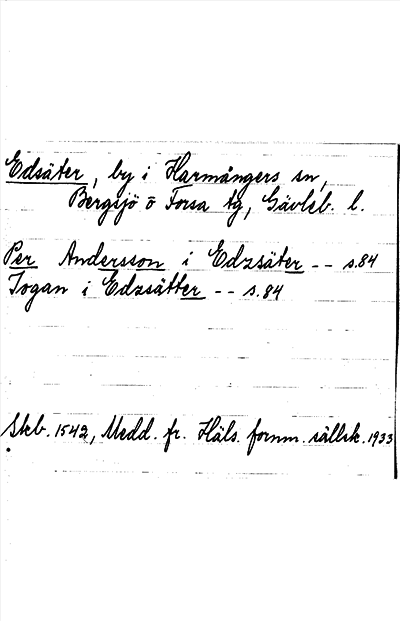 Edsäter, by i Harmångers sn,
Bergsjö o Forsa tg, Gävleb. l.
Per Andersson i Edzsäter -- s.84
Jogan i Edzsätter -- s.84
Skb. 1542, Medd. fr. Häls. fornm. sällsk. 1933